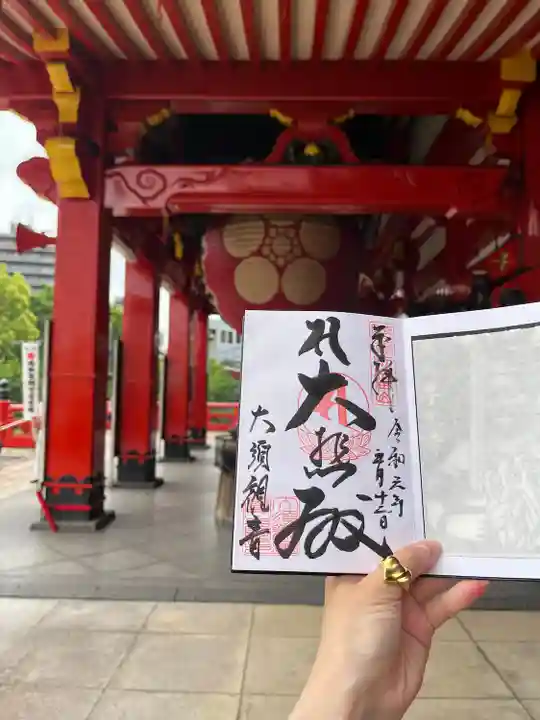 奉拝
令和元年
五月十三日
大悲殿
大須観音